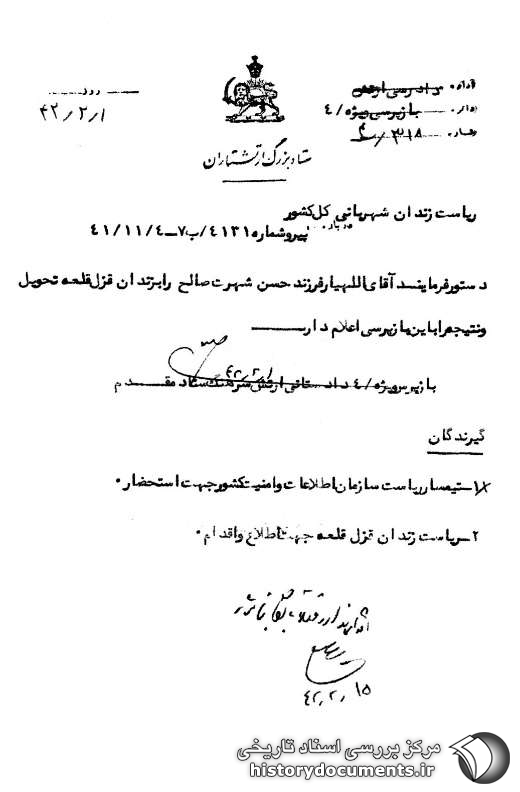 اداره دادرسی ارتش
دایره بازپرسی ویژه/۴
شماره ۳۱۸/
روز
۴۲/۲/۱
ستاد بزرگ ارتشتاران
ریاست زندان شهربانی کل کشور
درباره پیروشماره ۴۱۳۱/ب۷-۴۱/۱۱/۴
دستورفرمایند آقای اللهیارفرزند حسن شهرت صالح رابزندان قزل قلعه تحویل
ونتیجه رابااین بازپرسی اعلام دارند
بازپرس ویژه/۴ دادستانی ارتش سرهنگ ستاد مقدم
۴۲/۲/۱
گیرندگان
۱-تیمسارریاست سازمان اطلاعات وامنیت کشورجهت استحضار۰
۲-ریاست زندان قزل قلعه جهت اطلاع واقدام۰
۴۲/۲/۱۵
مرکز بررسی اسناد تاریخی
historydocuments.ir